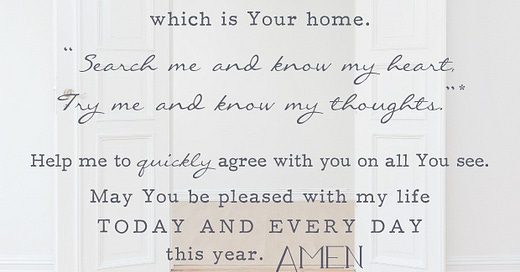 which is Your home.
“Search me and know my heart,
Try me and know my thoughts.”*
Help me to quickly agree with you on all You see.
May You be pleased with my life
TODAY AND EVERY DAY
this year. AMEN